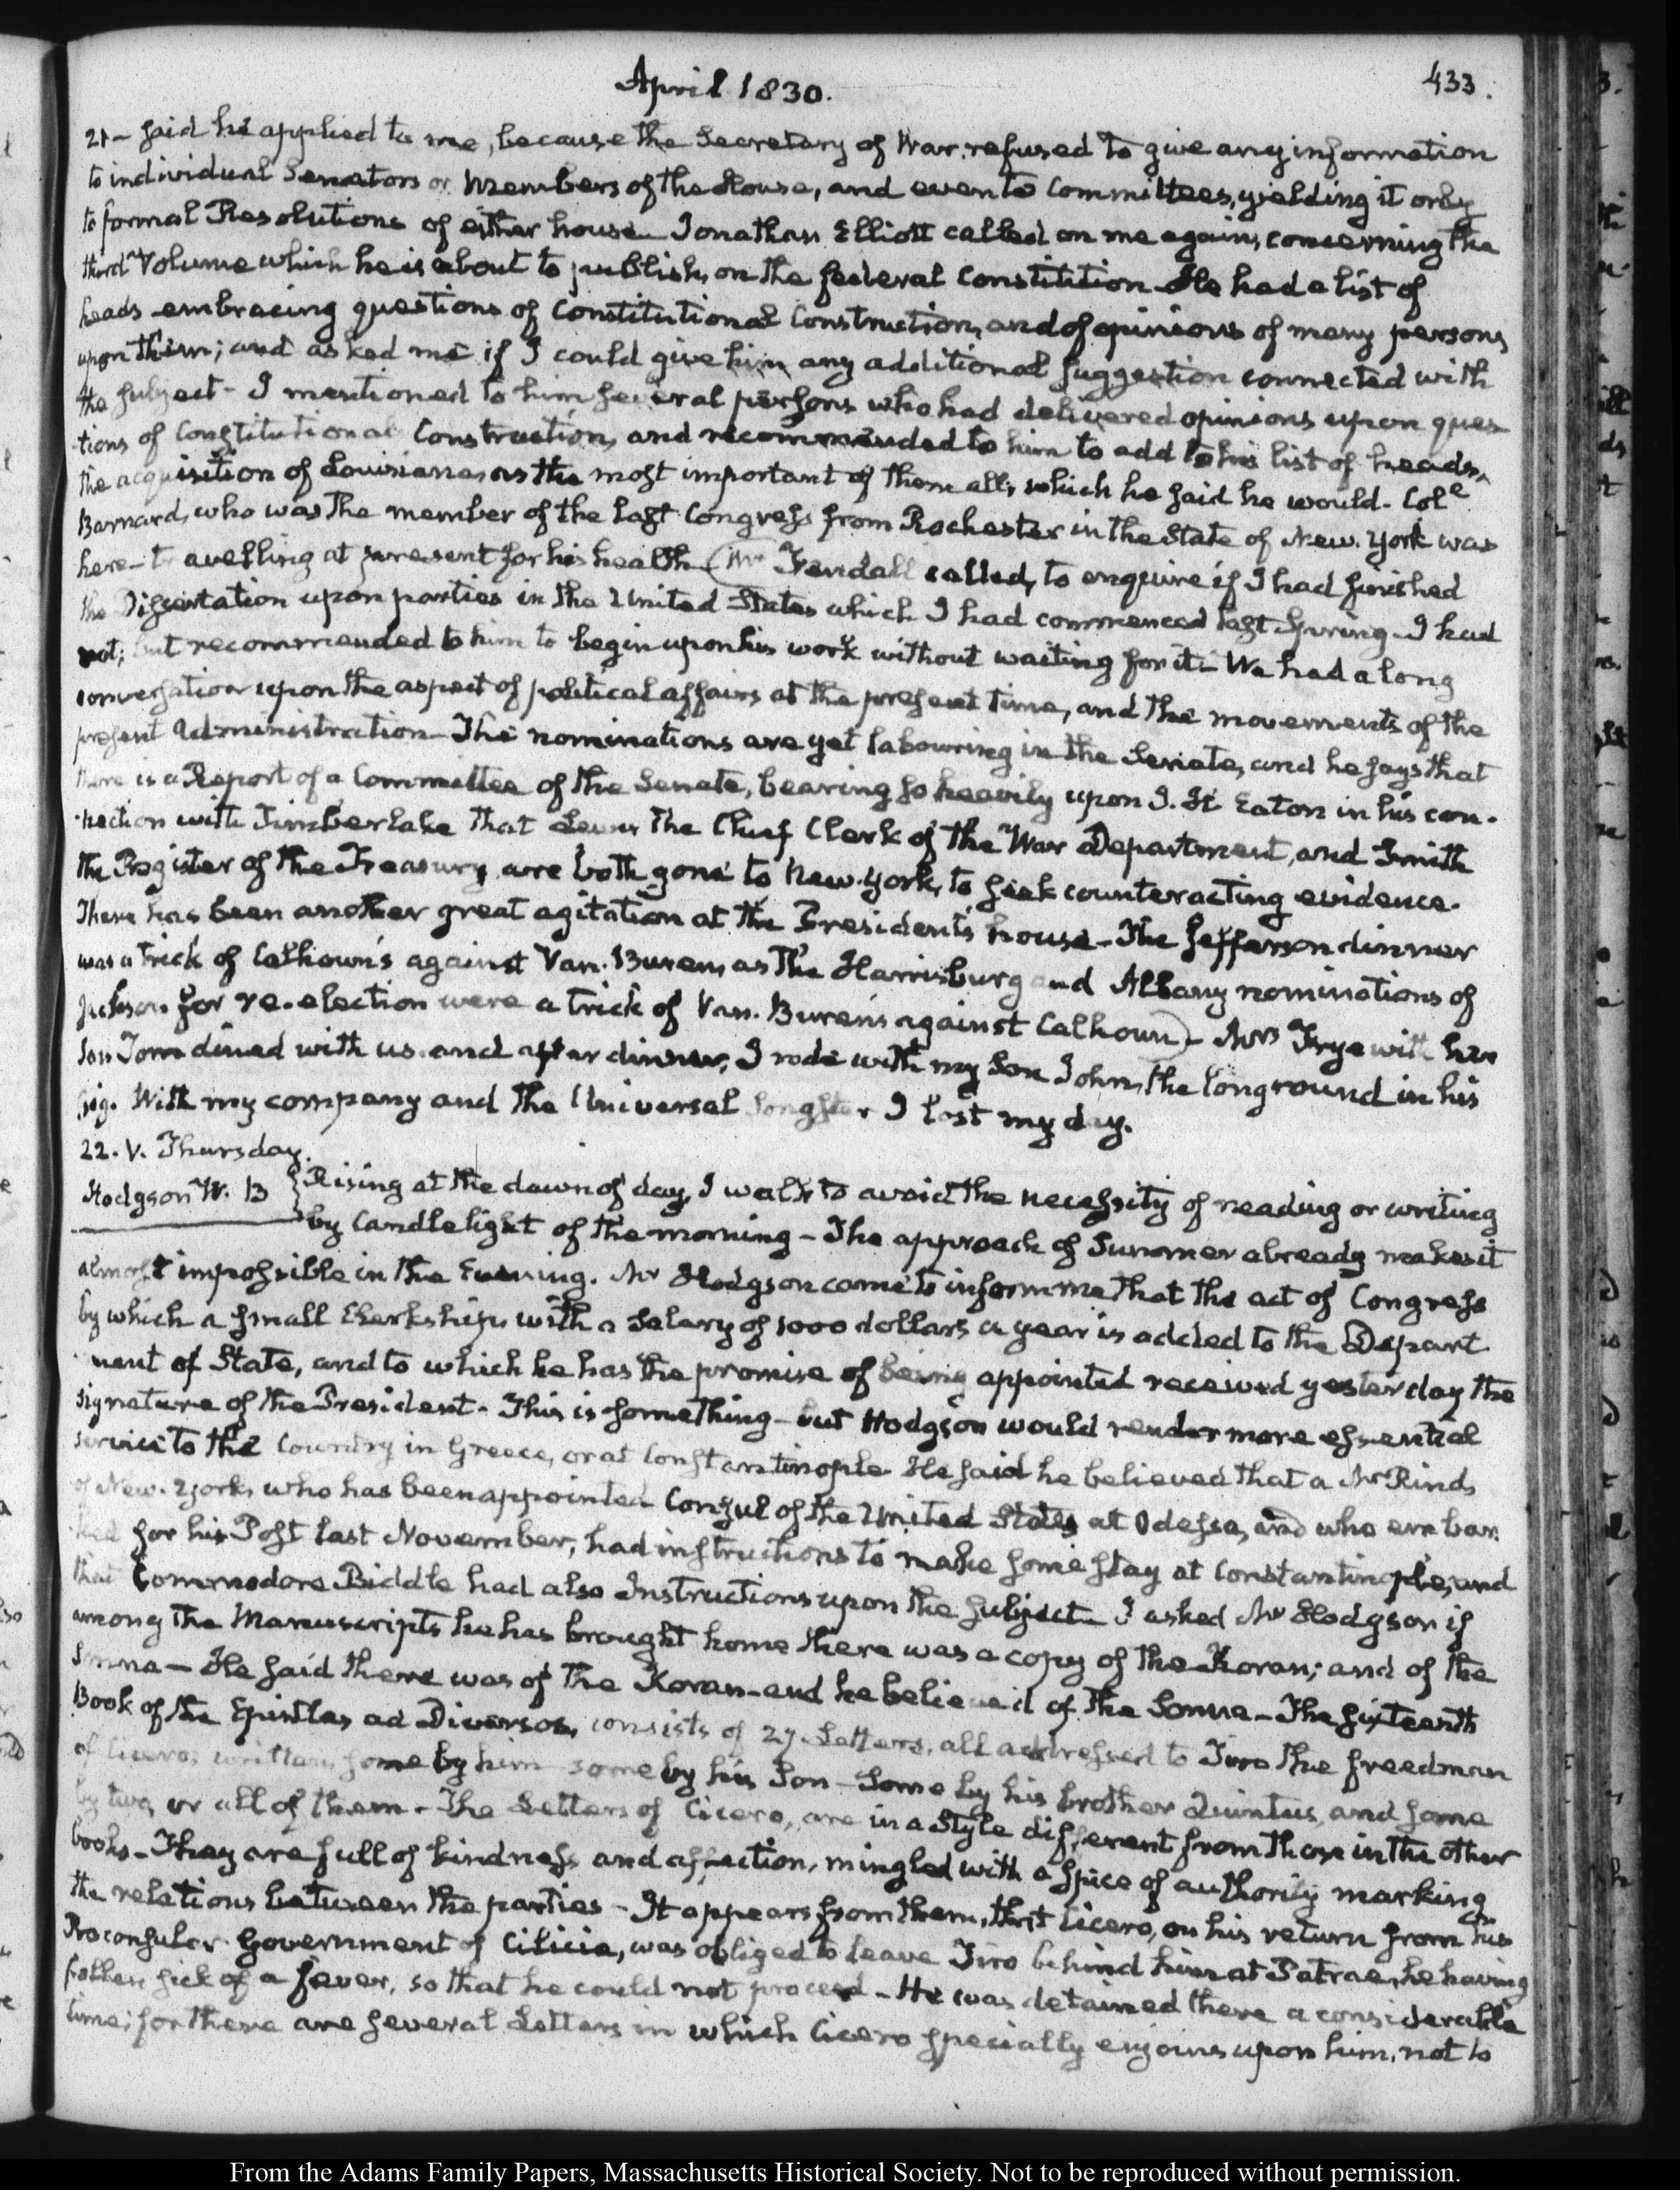 April 1830.
433.
21 - said he applied to me, because the Secretary of War refused to give any information
to individual Senators or Members of the House, and even to Committees, yielding it only
to formal Resolutions of either house - Jonathan Elliott called on me again, concerning the
third Volume which he is about to publish, on the federal Constitution - He had a list of
heads embracing questions of Constitutional Construction, and of opinions of many persons
upon them; and asked me if I could give him any additional suggestion connected with
the subject - I mentioned to him several persons who had delivered opinions upon ques
tions of Constitutional Construction, and recommended to him to add to his list of heads,
the acquisition of Louisiana, as the most important of them all, which he said he would - Col.e
Barnard, who was the member of the last Congress from Rochester in the State of New-York was
here - travelling at present for his health - (Mr Fendall called, to enquire if I had finished
the Dissertation upon parties in the United States which I had commenced last Spring - I had
not; but recommended to him to begin upon his work without waiting for it - We had a long
conversation upon the aspect of political affairs at the present time, and the movements of the
present Administration - The nominations are yet labouring in the Senate, and he says that
there is a Report of a Committee of the Senate, bearing so heavily upon J. H. Eaton in his con-
nection with Timberlake that Lewis the Chief Clerk of the War Department, and Smith
the Register of the Treasury are both gone to New-York, to seek counteracting evidence.
There has been another great agitation at the President's house - The Jefferson dinner
was a trick of Calhoun's against Van-Buren, as the Harrisburg and Albany nominations of
Jackson for re-election were a trick of Van-Buren's against Calhoun) - Mrs Frye with her
son Tom dined with us and after dinner, I rode with my Son John, the long round in his
gig. With my company and the Universal Songster I lost my day.
22. V. Thursday.
Hodgson W. B
Rising at the dawn of day, I walk to avoid the necessity of reading or writing
by Candlelight of the morning - The approach of Summer already makes it
almost impossible in the Evening. Mr Hodgson came to inform me that the act of Congress
by which a small Clerkship with a Salary of 1000 dollars a year is added to the Depart
ment of State, and to which he has the promise of being appointed received yesterday the
signature of the President - This is something - but Hodgson would render more essential
service to the Country in Greece, or at Constantinople He said he believed that a Mr Rind
of New-York, who has been appointed Consul of the United States at Odessa, and who embar
ked for his Post last November, had instructions to make some stay at Constantinople, and
that Commodore Biddle had also Instructions upon the subject - I asked Mr Hodgson if
among the Manuscripts he has brought home there was a copy of the Koran; and of the
Sonna - He said there was of the Koran - and he believed of the Sonna - The sixteenth
Book of the Epistles ad Diversos, consists of 27 Letters, all addressed to Tiro the freedman
of Cicero; written some by him some by his Son - Some by his brother Quintus, and some
by two, or all of them - The Letters of Cicero, are in a Style different from those in the other
books - They are full of kindness and affection, mingled with a spice of authority marking
the relations between the parties - It appears from them, that Cicero, on his return from his
Proconsular Government of Cilicia, was obliged to leave Tiro behind him at Patrae, he having
fallen sick of a fever, so that he could not proceed - He was detained there a considerable
time; for there are several Letters in which Cicero specially enjoins upon him, not to
From the Adams Family Papers, Massachusetts Historical Society. Not to be reproduced without permission.